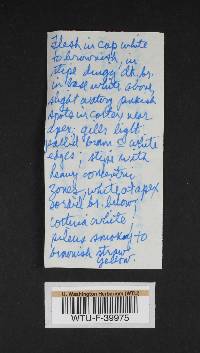 Flesh in cap white
to brownish, in
stipe dingy dk. br.
in base white above,
slight watery pinkish
spots in cortex near
apex; gills light
pallid brown c̄ white
edges; stipe with
heavy concentric
zones, white at apex
sordid br. below;
cortina white;
pileus smokey to
brownish straw
yellow.
U. Washington Herbarium (WTU)
WTU-F-39975